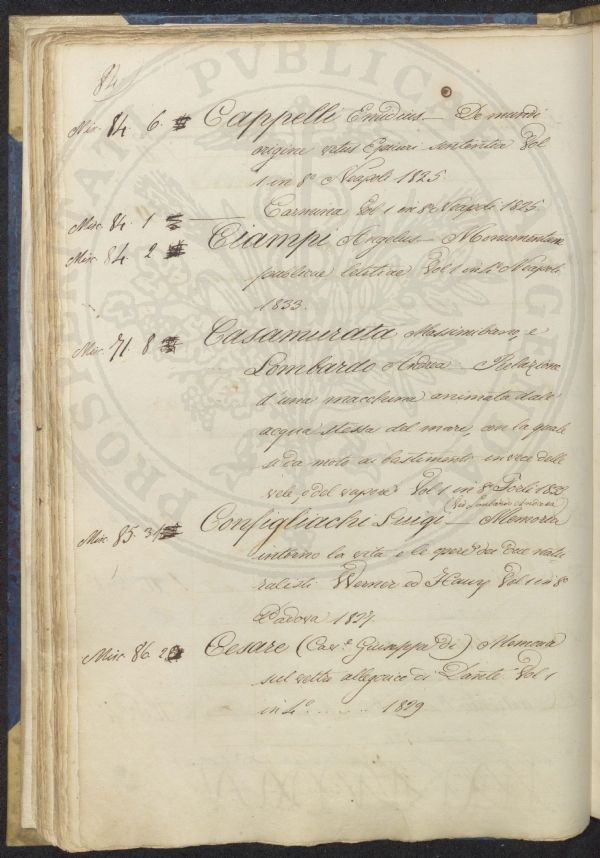 84
Mis. 84. 6. Cappelli Emidius — De mundi
origine vetus Epicuri sententia Vol
1 in 8º Neapoli 1825.
Misc. 84. 1 — Carmina Vol 1 in 8º Neapoli 1825.
Misc. 84. 2 Ciampi Angelus — Monumentum
publicae letitiae Vol 1 in 4º Neapoli
1833.
Mis. 71. 8 Casamurata Massimiliano, e
Lombardo Andrea — Relazione
d'una macchina animata dall'
acqua stessa del mare, con la quale
si da moto ai bastimenti in vece delle
vele, o del vapore Vol 1 in 8º Forlì
(Vid Lombardo Andrea)
Misc. 85. Configliachi Luigi — Memoria
intorno la vita e le opere dei due natu
ralisti Werner ed Haüy Vol 1 in 8º
Padova 1827.
Misc. 86. Cesare (Cav.e Giuseppe Di) Memoria
sul veltro allegorico di Dante Vol 1
in 4º ..... 1829
PROSPERITATI PUBLICAE AUGENDAE